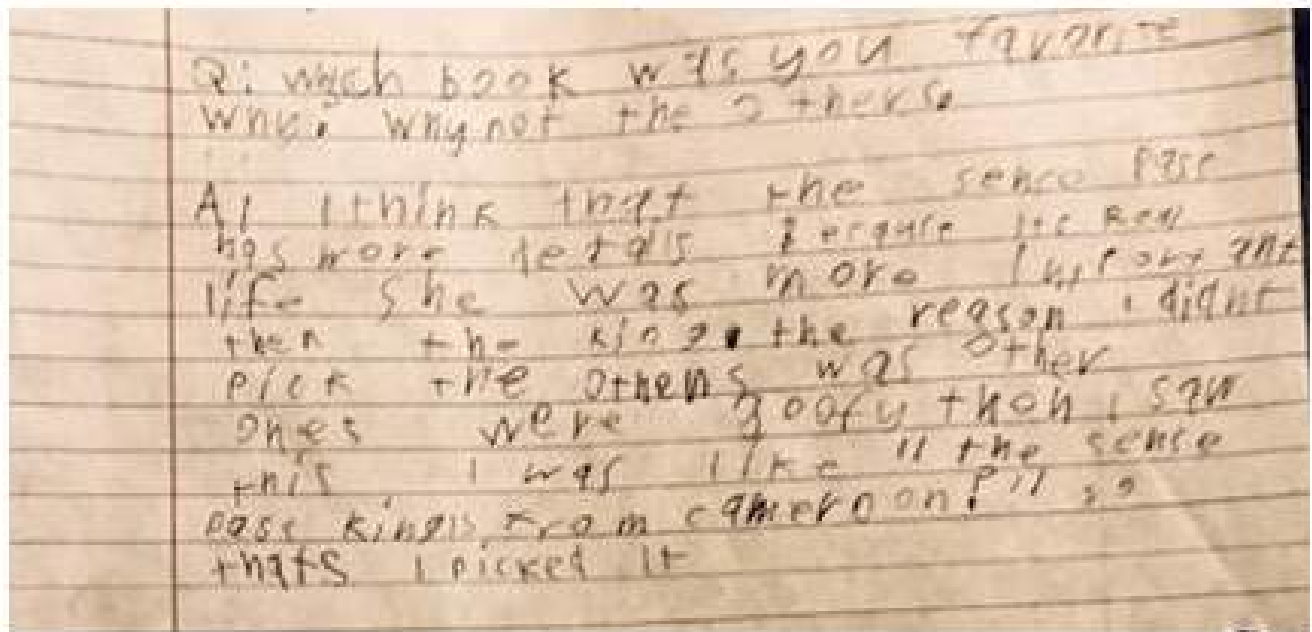 Q: wych book was you favorite
why. why not the others.
A: I think that the sence
has more detals because its real
life she was more important
then the king. the reason i didnt
pick the others was other
ones were goofy then i saw
this I was like "the sence
king is from cameroon?!" so
thats i picked it